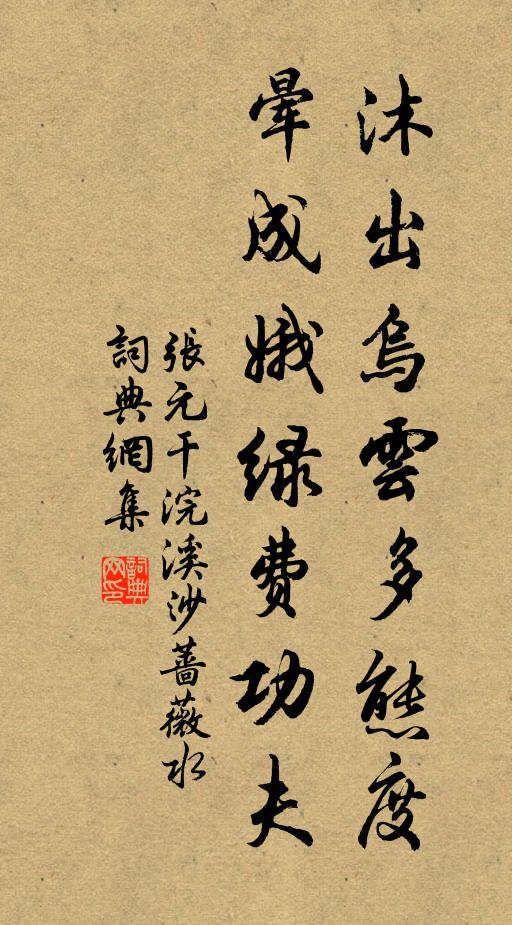 沐出烏雲多態度
暈成娥緑費功夫
張元干浣溪沙薔薇水
詞典網集
詞典網印